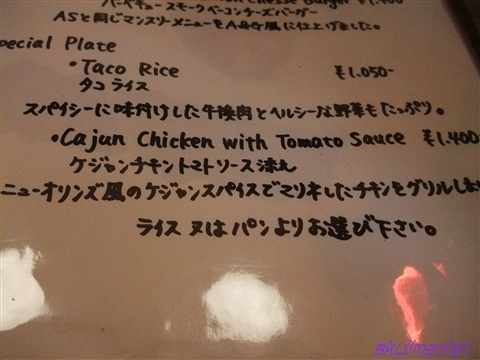 バーベキュー スモークベーコンチーズバーガー
ASと同じマンスリーメニューをA&G風に仕上げました。
pecial Plate
・Taco Rice ¥1,050-
タコライス
スパイシーに味付けした牛挽肉とヘルシーな野菜もたっぷり。
・Cajun Chicken with Tomato Sauce ¥1,400
ケジャンチキントマトソース添え
ニューオリンズ風のケジャンスパイスでマリネしたチキンをグリルしま
ライス 又は パン よりお選び下さい。
skullmantan